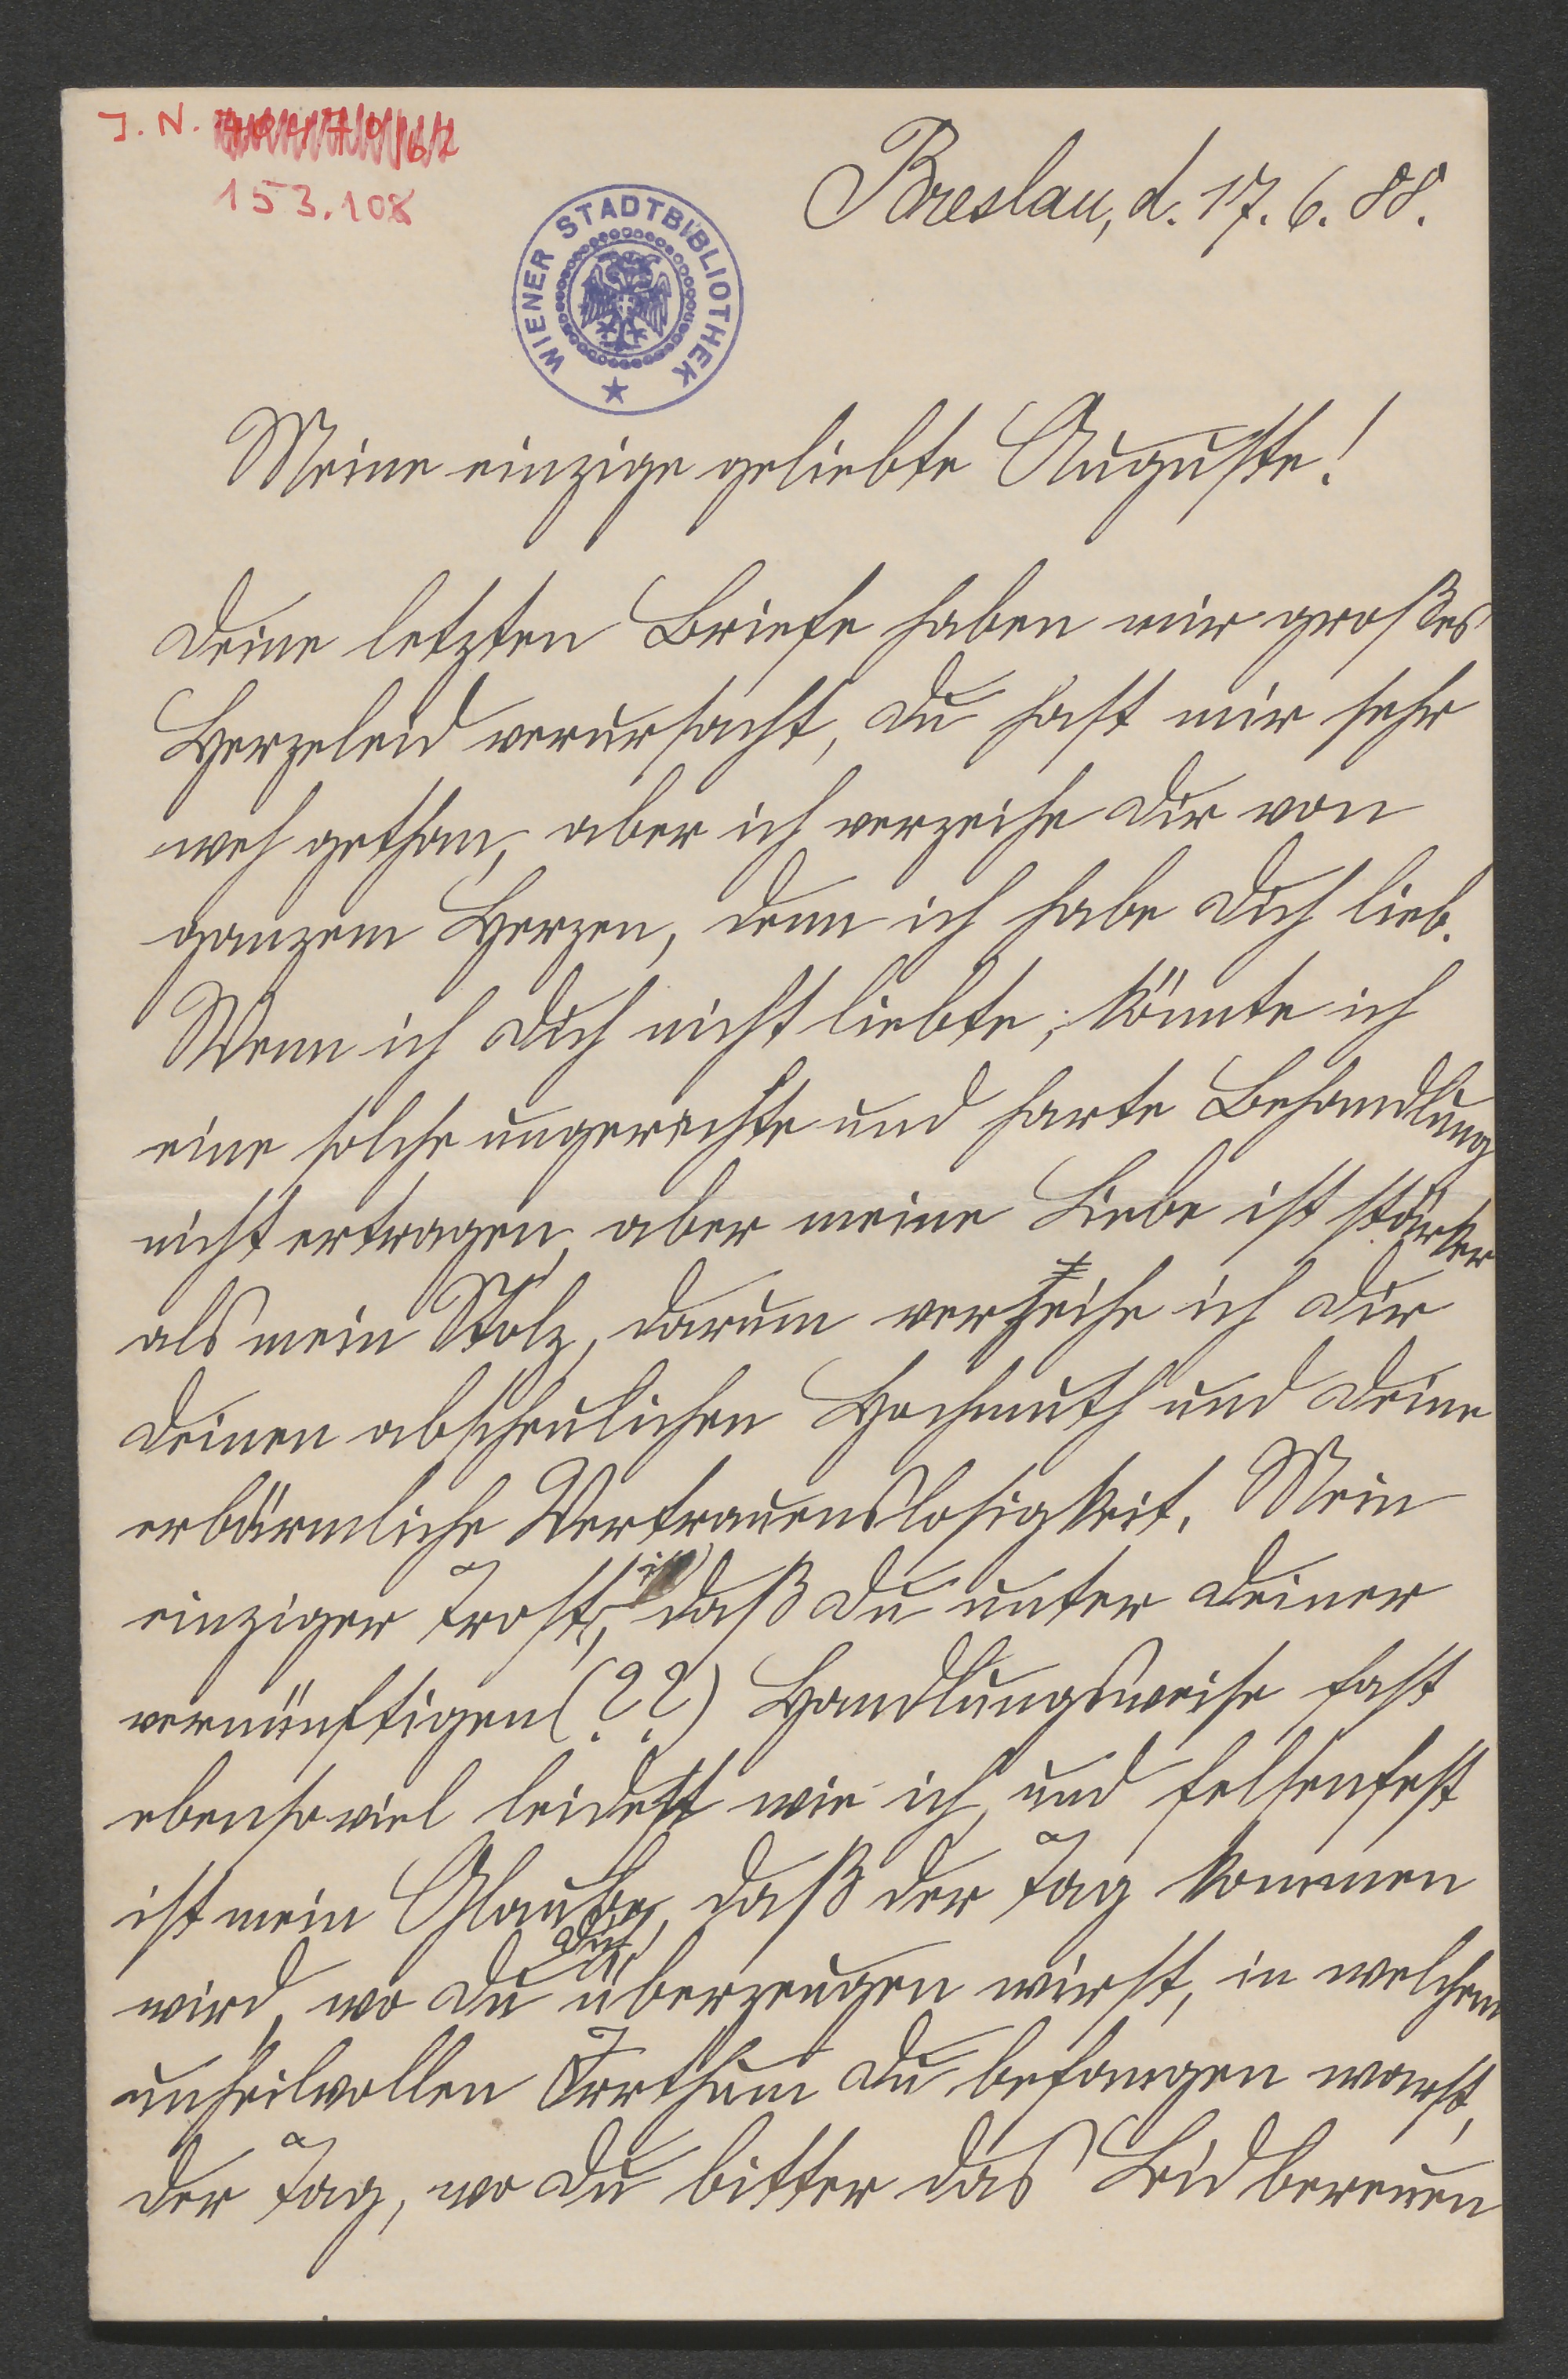 J. N.
153.108
WIENER STADTBIBLIOTHEK
Breslau, d. 17. 6. 88.
Meine einzige geliebte Auguste!
Deine letzten Briefe haben mir großes
Herzeleid verursacht, Du hast mir sehr
weh gethan, aber ich verzeihe Dir von
ganzem Herzen, denn ich habe Dich lieb.
Wenn ich Dich nicht liebte, könnte ich
eine solche ungerechte und harte Behandlung
nicht ertragen, aber meine Liebe ist stärker
als mein Stolz, darum verzeihe ich Dir
Deinen abscheulichen Hochmuth und Deine
erbärmliche Vertrauenslosigkeit. Mein
einziger Trost ist, daß Du unter Deiner
vernünftigen (??) Handlungsweise fast
ebensoviel leidest wie ich, und felsenfest
ist mein Glaube, daß der Tag kommen
wird, wo Du Dich überzeugen wirst, in welchem
unheilvollen Irrthum Du befangen warst,
der Tag, wo Du bitter das Leid bereuen